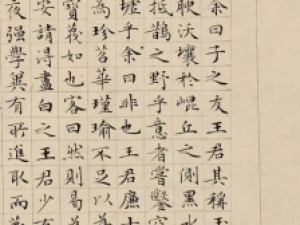 余曰子之友王君其稱玉
映沃壤於崐丘之側黑水
抵鵲之野乎意者嘗鑿穿
墟乎余曰非也王君廉士
為珍苕華瑾瑜不足以為
寶蔑如也客曰然則曷
安請得盡白之王君少有
夜强學異有所進取而